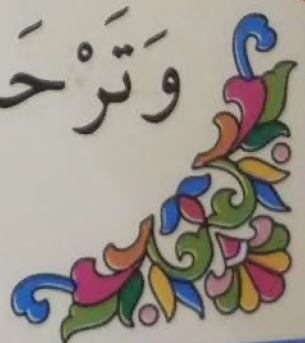 وَتَرْحَ